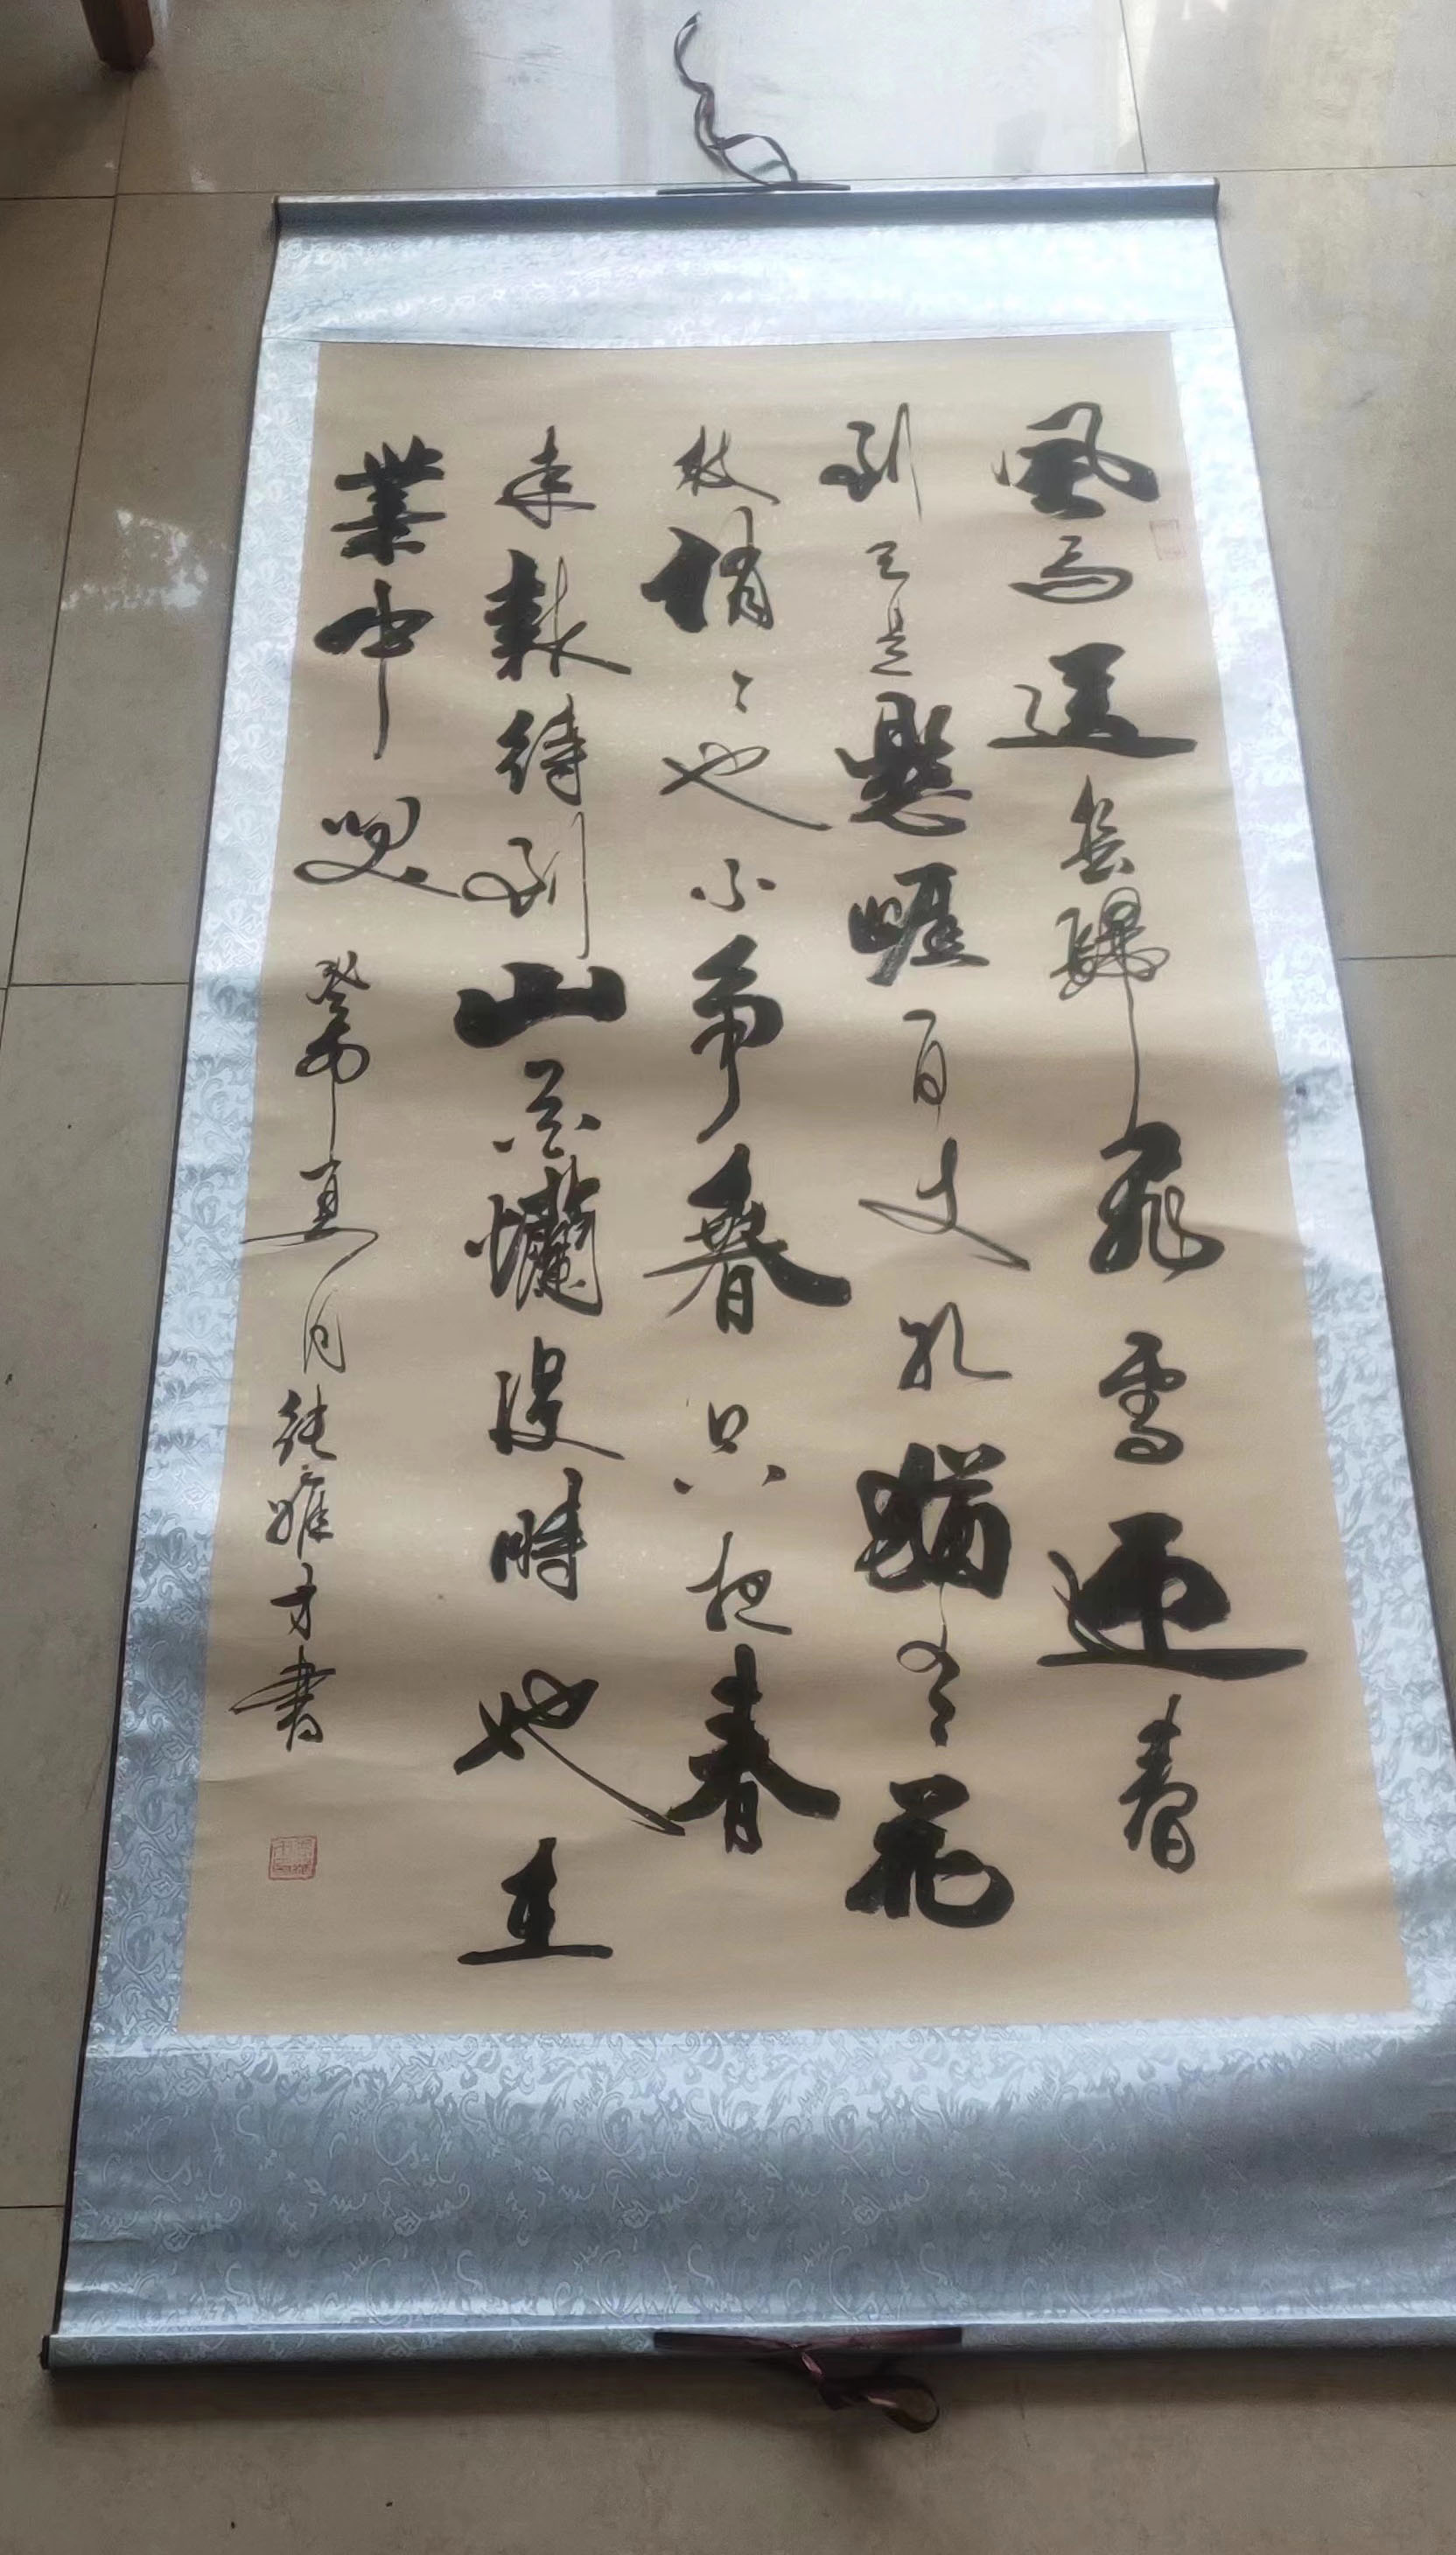 風雨送春歸飛雪迎春
到已是懸崖百丈冰猶有花
枝俏々也不爭春只把春
来報待到山花爛漫時她在
叢中笑 癸卯夏月 雄才書